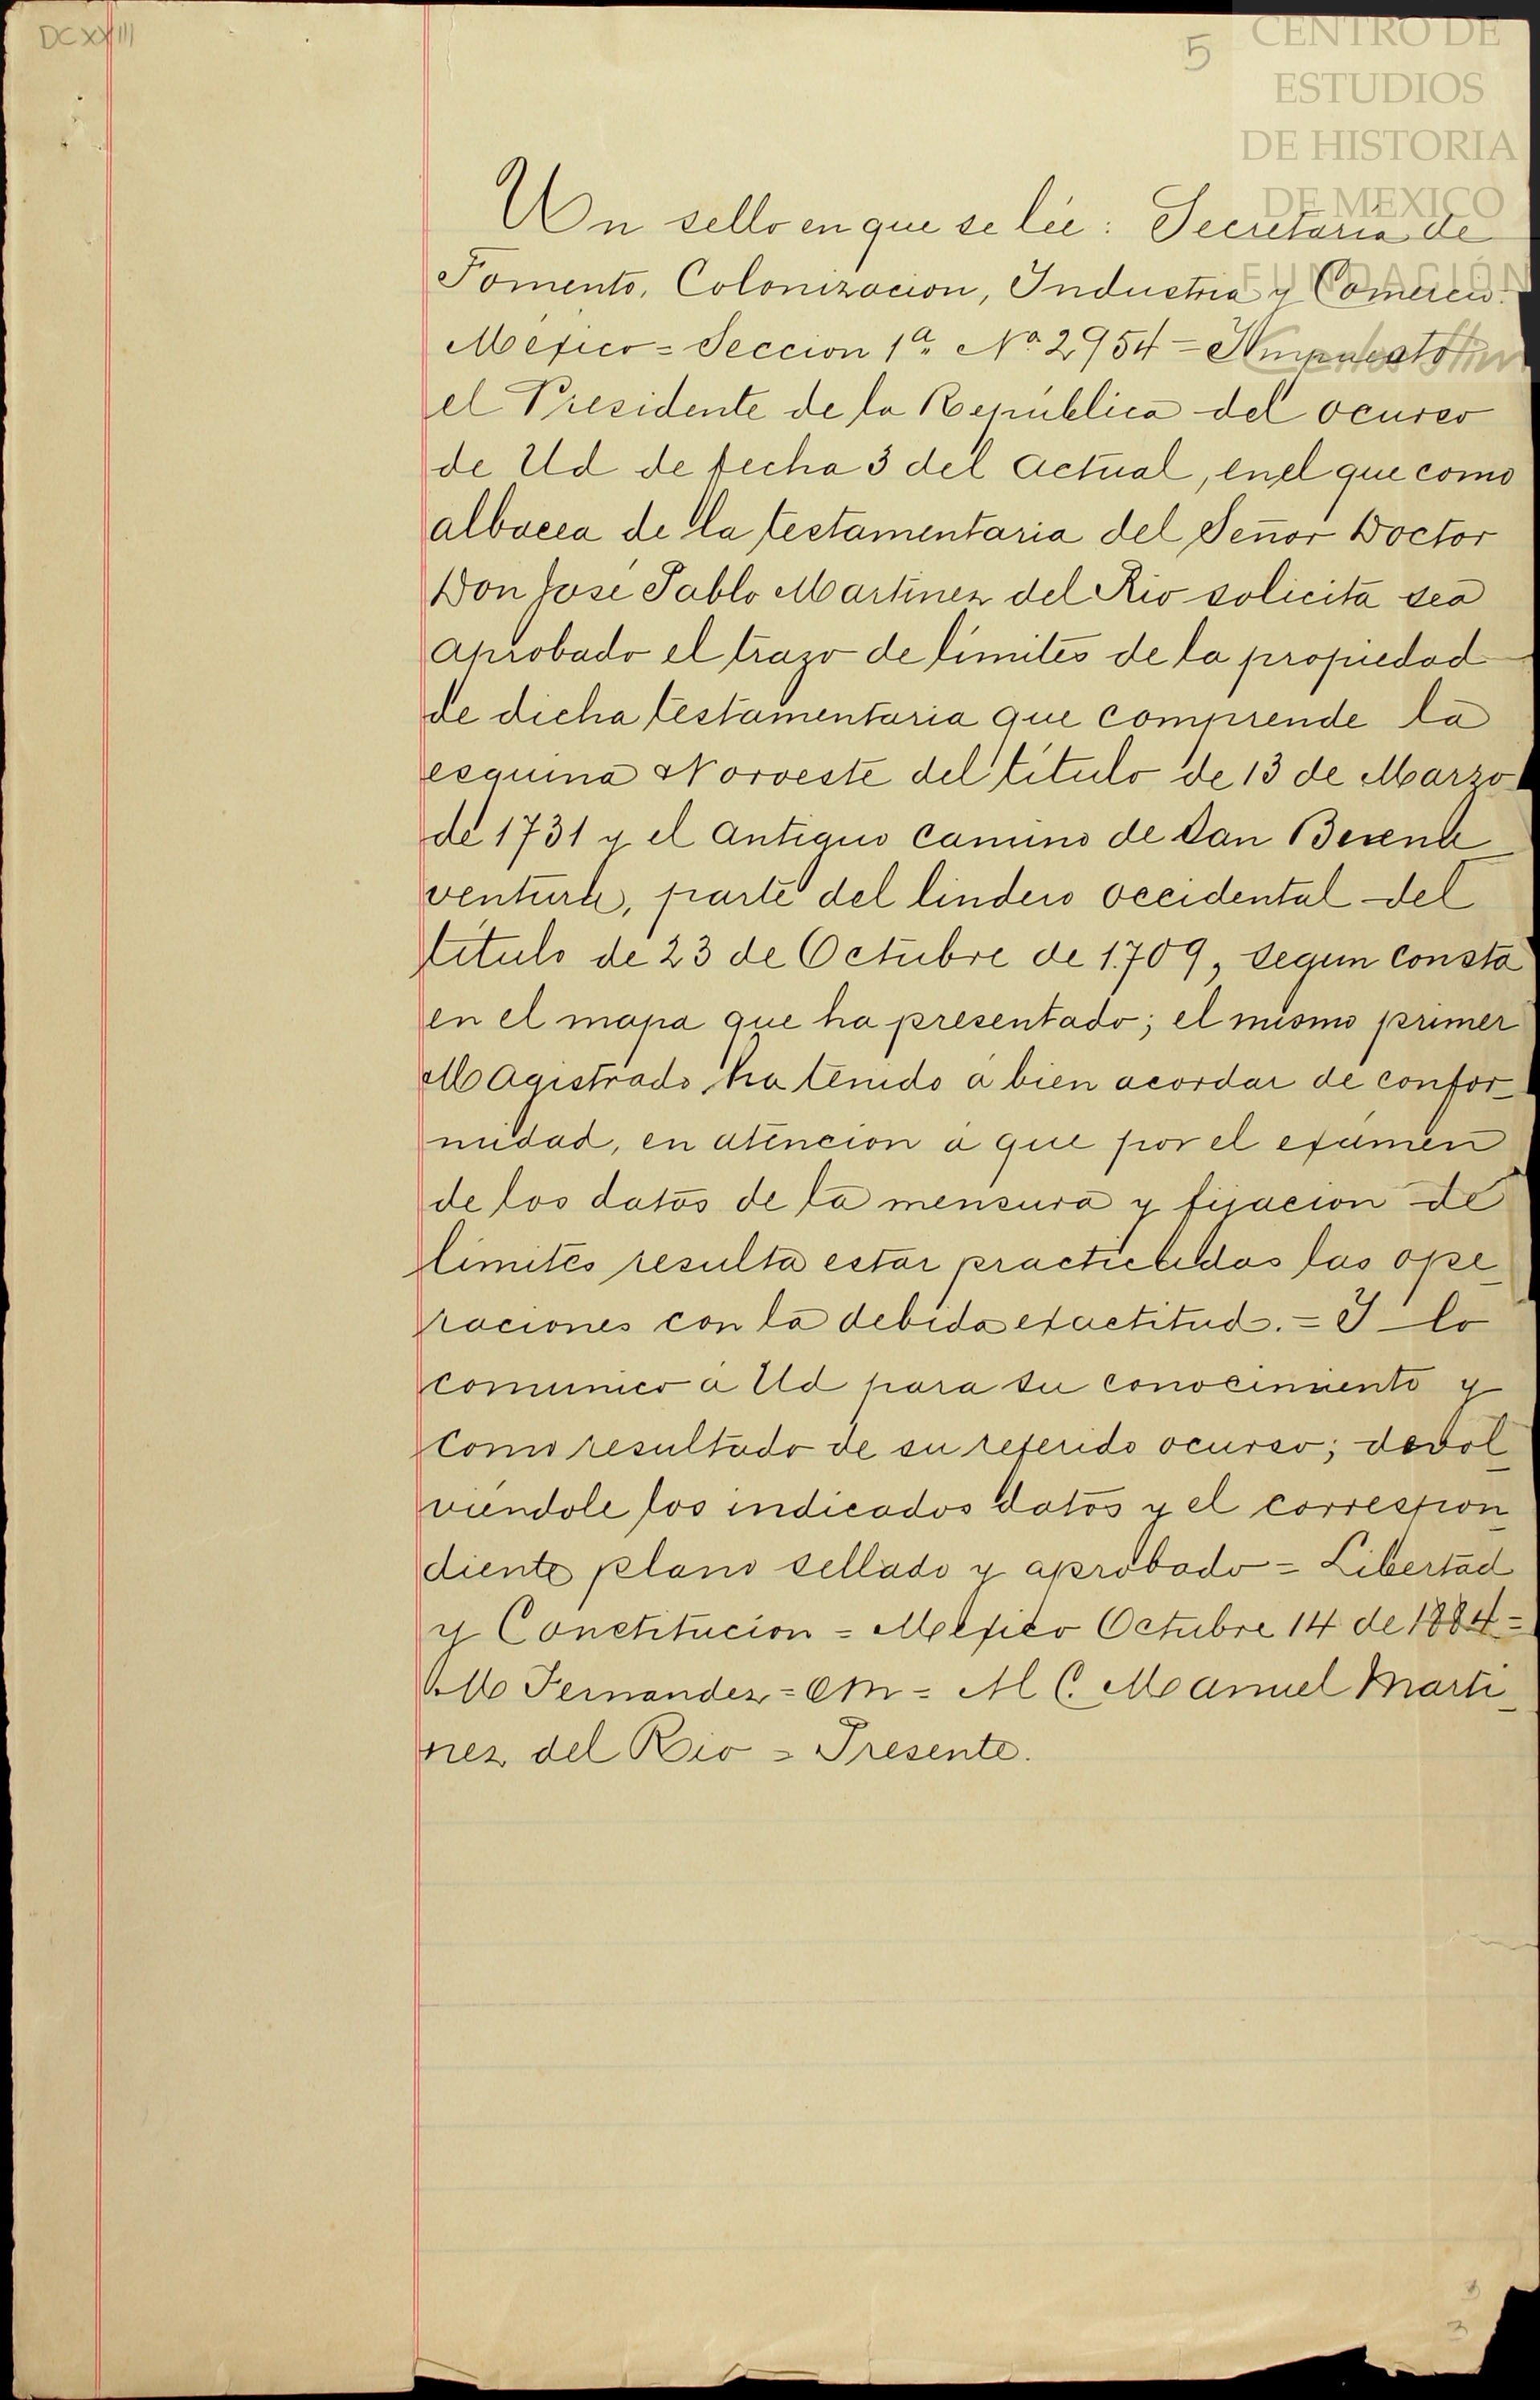 DCXXIII
5
CENTRO DE
ESTUDIOS
DE HISTORIA
DE MEXICO
FUNDACIÓN
Carlos Slim
Un sello en que se lée: Secretaría de
Fomento, Colonizacion, Industria y Comercio.
México = Seccion 1ª Nº 2954 = Impuesto
el Presidente de la República del ocurso
de Ud de fecha 3 del actual, en el que como
albacea de la testamentaria del Señor Doctor
Don José Pablo Martinez del Rio solicita sea
aprobado el trazo de límites de la propiedad
de dicha testamentaria que comprende la
esquina Noroeste del título de 13 de Marzo
de 1731 y el antiguo camino de San Buena
ventura, parte del lindero occidental del
título de 23 de Octubre de 1709, segun consta
en el mapa que ha presentado; el mismo primer
Magistrado ha tenido á bien acordar de confor_
midad, en atencion á que por el exámen
de los datos de la mensura y fijacion de
límites resulta estar practicadas las ope_
raciones con la debida exactitud. = Y lo
comunico á Ud para su conocimiento y
como resultado de su referido ocurso; devol_
viéndole los indicados datos y el correspon_
diente plano sellado y aprobado = Libertad
y Constitucion = Mexico Octubre 14 de 1884 =
M Fernandez = Om = Al C. Manuel Marti_
nez del Rio = Presente.
3